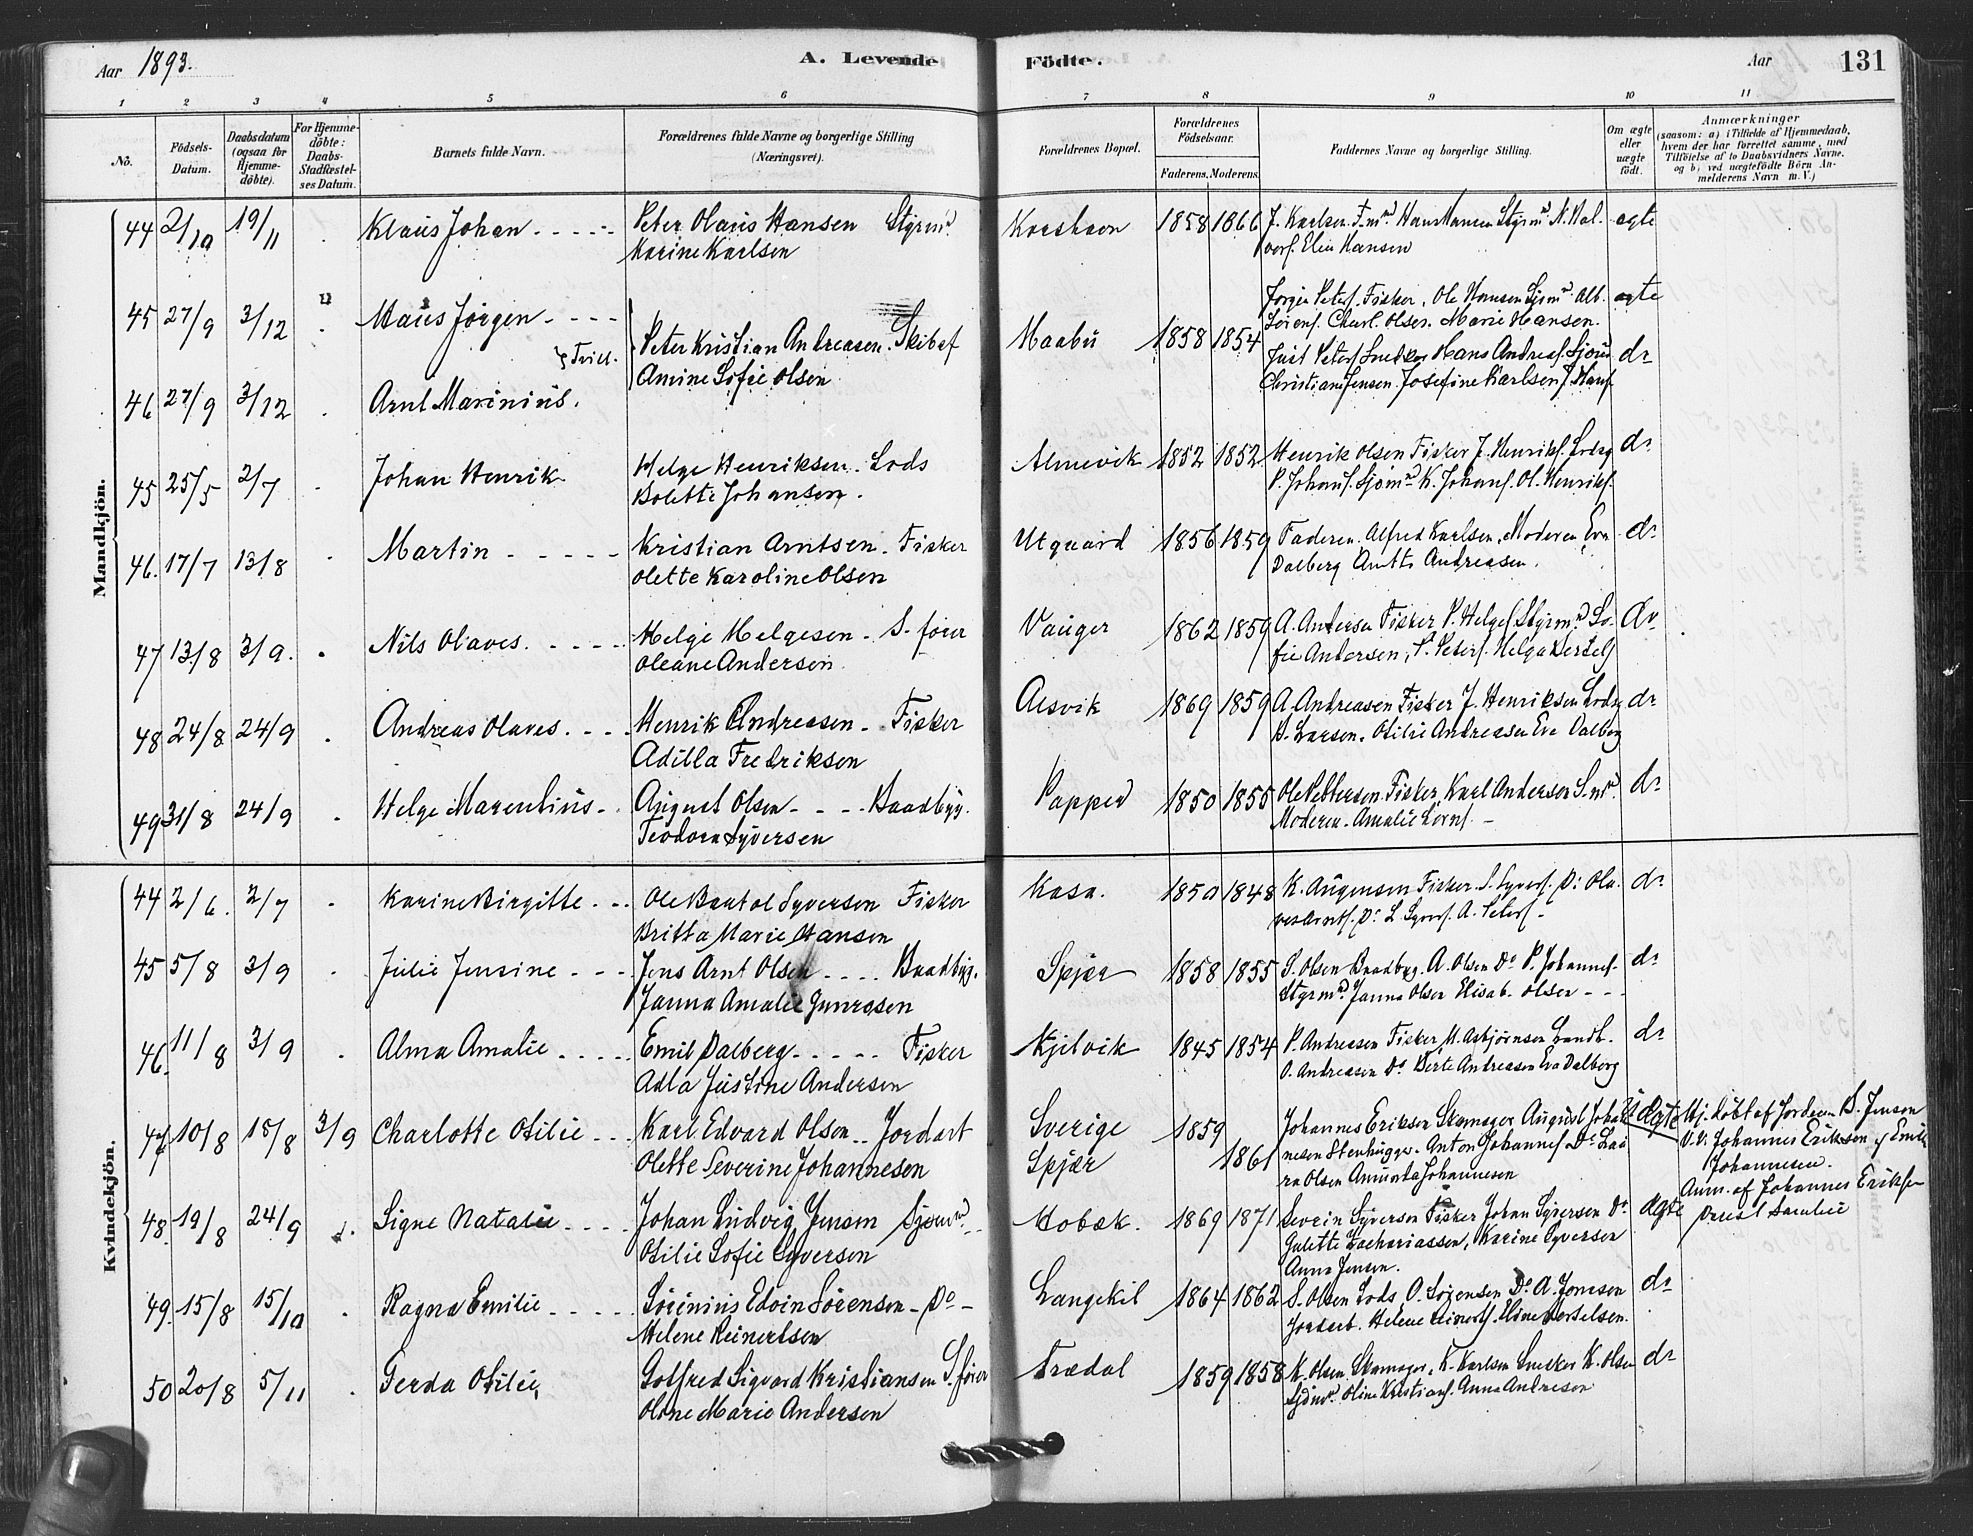 Aar 1893.
A. Levende
Födte.
Aar
131
1 2 3 4 5 6 7 8 9 10 11
No.
Födsels-Datum.
Daabsdatum (ogsaa for Hjemme-döbte).
For Hjemme-döbte: Daabs-Stadfæstel-ses Datum.
Barnets fulde Navn.
Forældrenes fulde Navne og borgerlige Stilling (Næringsvei).
Forældrenes Bopæl.
Forældrenes Födselsaar.
Faderens. Moderens.
Faddernes Navne og borgerlige Stilling.
Om ægte eller uægte födt.
Anmærkninger
(saasom: a) i Tilfælde af Hjemmedaab,
hvem der har forrettet samme, med
Tilföielse af to Daabsvidners Navne.
og b) ved uægtefödte Börn An-
melderens Navn m. V.)
Mandkjön.
44 2/10 19/11 Klaus Johan Peter Olaus Hansen Styrmd. Korshavn 1858 1866 J. Karlsen F.md Hans Hansen Styrmd N. Hal- ægte
Karine Karlsen vors. Elin Hansen
45 27/9 3/12 Maus Jørgen Jørgen Peters. Fisker, Ole Hansen Sjømd Alb. ægte
Sørens. Charl. Olsen. Marie Hansen.
Tvill. Peter Kristian Andreasen. Skibsf Maabu 1858 1854 Just Peters. Snedker Hans Andreas. Sjom do
Amine Sofie Olsen Christiane Jensen Josefine Karlsen J. Hans.
46 27/9 3/12 Arnt Marinius.
45 25/5 2/7 Johan Henrik Helge Henriksen. Lods Almevik 1852 1852 Henrik Olsen Fisker J. Henriks. Lods do
Bolette Johansen. P. Johans. Sjømd K. Johans. Ol. Henriks.
46. 17/7 13/8 Martin Kristian Arntsen. Fisker Utgaard 1856 1859 Faderen. Alfred Karlsen, Moderen Eva do
Olette Karoline Olsen Dalberg Andreasen.
47 13/8 3/9. Nils Olaves. Helge Helgesen. S. fører Vauger 1862 1859 A. Andersen Fisker P. Helges. Styrmd So- do
Oleane Andersen fie Andersen, P. Peters. Helga Bertels.
48 24/8 24/9 Andreas Olaves. Henrik Andreasen. Fisker Aesvik 1869 1859 A. Andreasen Fisker J. Henriksen Lods do
Adilla Fredriksen B. Larsen. Otilie Andreasen Eva Dalberg
49 31/8 24/9 Helge Marentius August Olsen Baadbyg. Papper 1850 1855 Ole Pettersen Fisker Karl Andersen S.md. do
Teodora Syversen Moderen. Amalie
Kvindekjön.
44 2/6. 2/7 Karine Birgitte Ole Bartol Syversen Fisker Kasa. 1850 1848 K. Augensen Fisker. S. Syvers. Do Ola- do
Britta Marie Hansen ves Arnts. Do L Syvers. A. Peters.
45 5/8 3/9 Julie Jensine Jens Arnt Olsen Baadbyg. Spjær 1858 1855 S. Olsen Baadbyg. A. Olsen Do P. Johannes. do
Janna Amalie Gunrosen Styrmd. Janna Olsen Elisab. Olsen
46. 11/8 3/9 Alma Amalie Emil Dalberg Fisker Kjelvik 1845 1854 P. Andreasen Fisker M. Asbjørnsen Landh. do
Adla Justine Andersen O. Andreasen Do Berte Andreasen Eva Dalberg
47 10/8 15/8 3/9 Charlotte Otilie Karl Edvard Olsen Jordarb Sverige 1859 Johannes Eriksen Skomager August Johan- Uægte Hj. døbt af Jordem. S. Jenson
Olette Severine Johannesen Spjær 1861 nesen Stenhugger. Anton Johannes. Do Lau- V.V. Johannes Eriksen & Emilie
ra Olsen Amunda Johannesen Johannesen.
Anm. af Johannes Eriksen
48. 19/8 24/9 Signe Natalie Johan Ludvig Jenson Sjømd. Mobæk. 1869 1871 Severin Syversen Fisker Johan Syversen Do ægte
Otilie Sofie Syversen Gulette Zachariassen, Karine Syversen
Anna Jensen.
49. 15/8 15/10 Ragna Emilie Sørinius Edvin Sørensen Do Langekil 1864 1862 S. Olsen Lods O. Sørensen Do A. Jonsson do
Helene Reinertsen Jordarb. Helene Reinerts. Eline Bertelsen.
50 20/8 5/11 Gerda Otilie Gotfred Sigvard Kristiansen S. fører Trædal 1859 1858 K. Olsen Skomager, K. Karlsen Snedker K. Olsen do
Oline Marie Andersen Sjømd. Oline Kristians. Anna Andresen